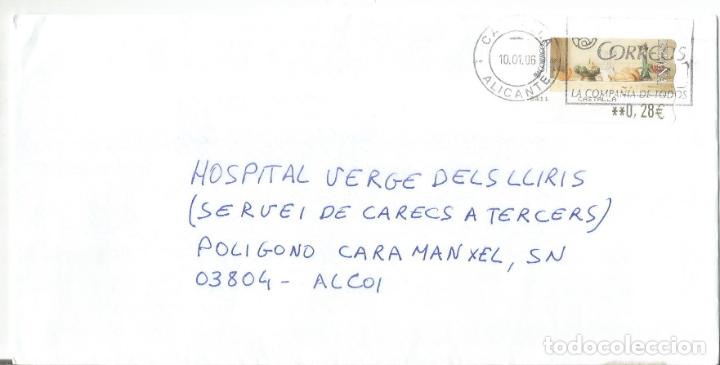 CASTALLA
10.01.06
ALICANTE
CORREOS
LA COMPAÑÍA DE TODOS
CASTALLA
**0,28€
HOSPITAL VERGE DELS LLIRIS
(SERVEI DE CARECS A TERCERS)
POLIGONO CARAMANXEL, SN
03804 - ALCOI
todocoleccion.net